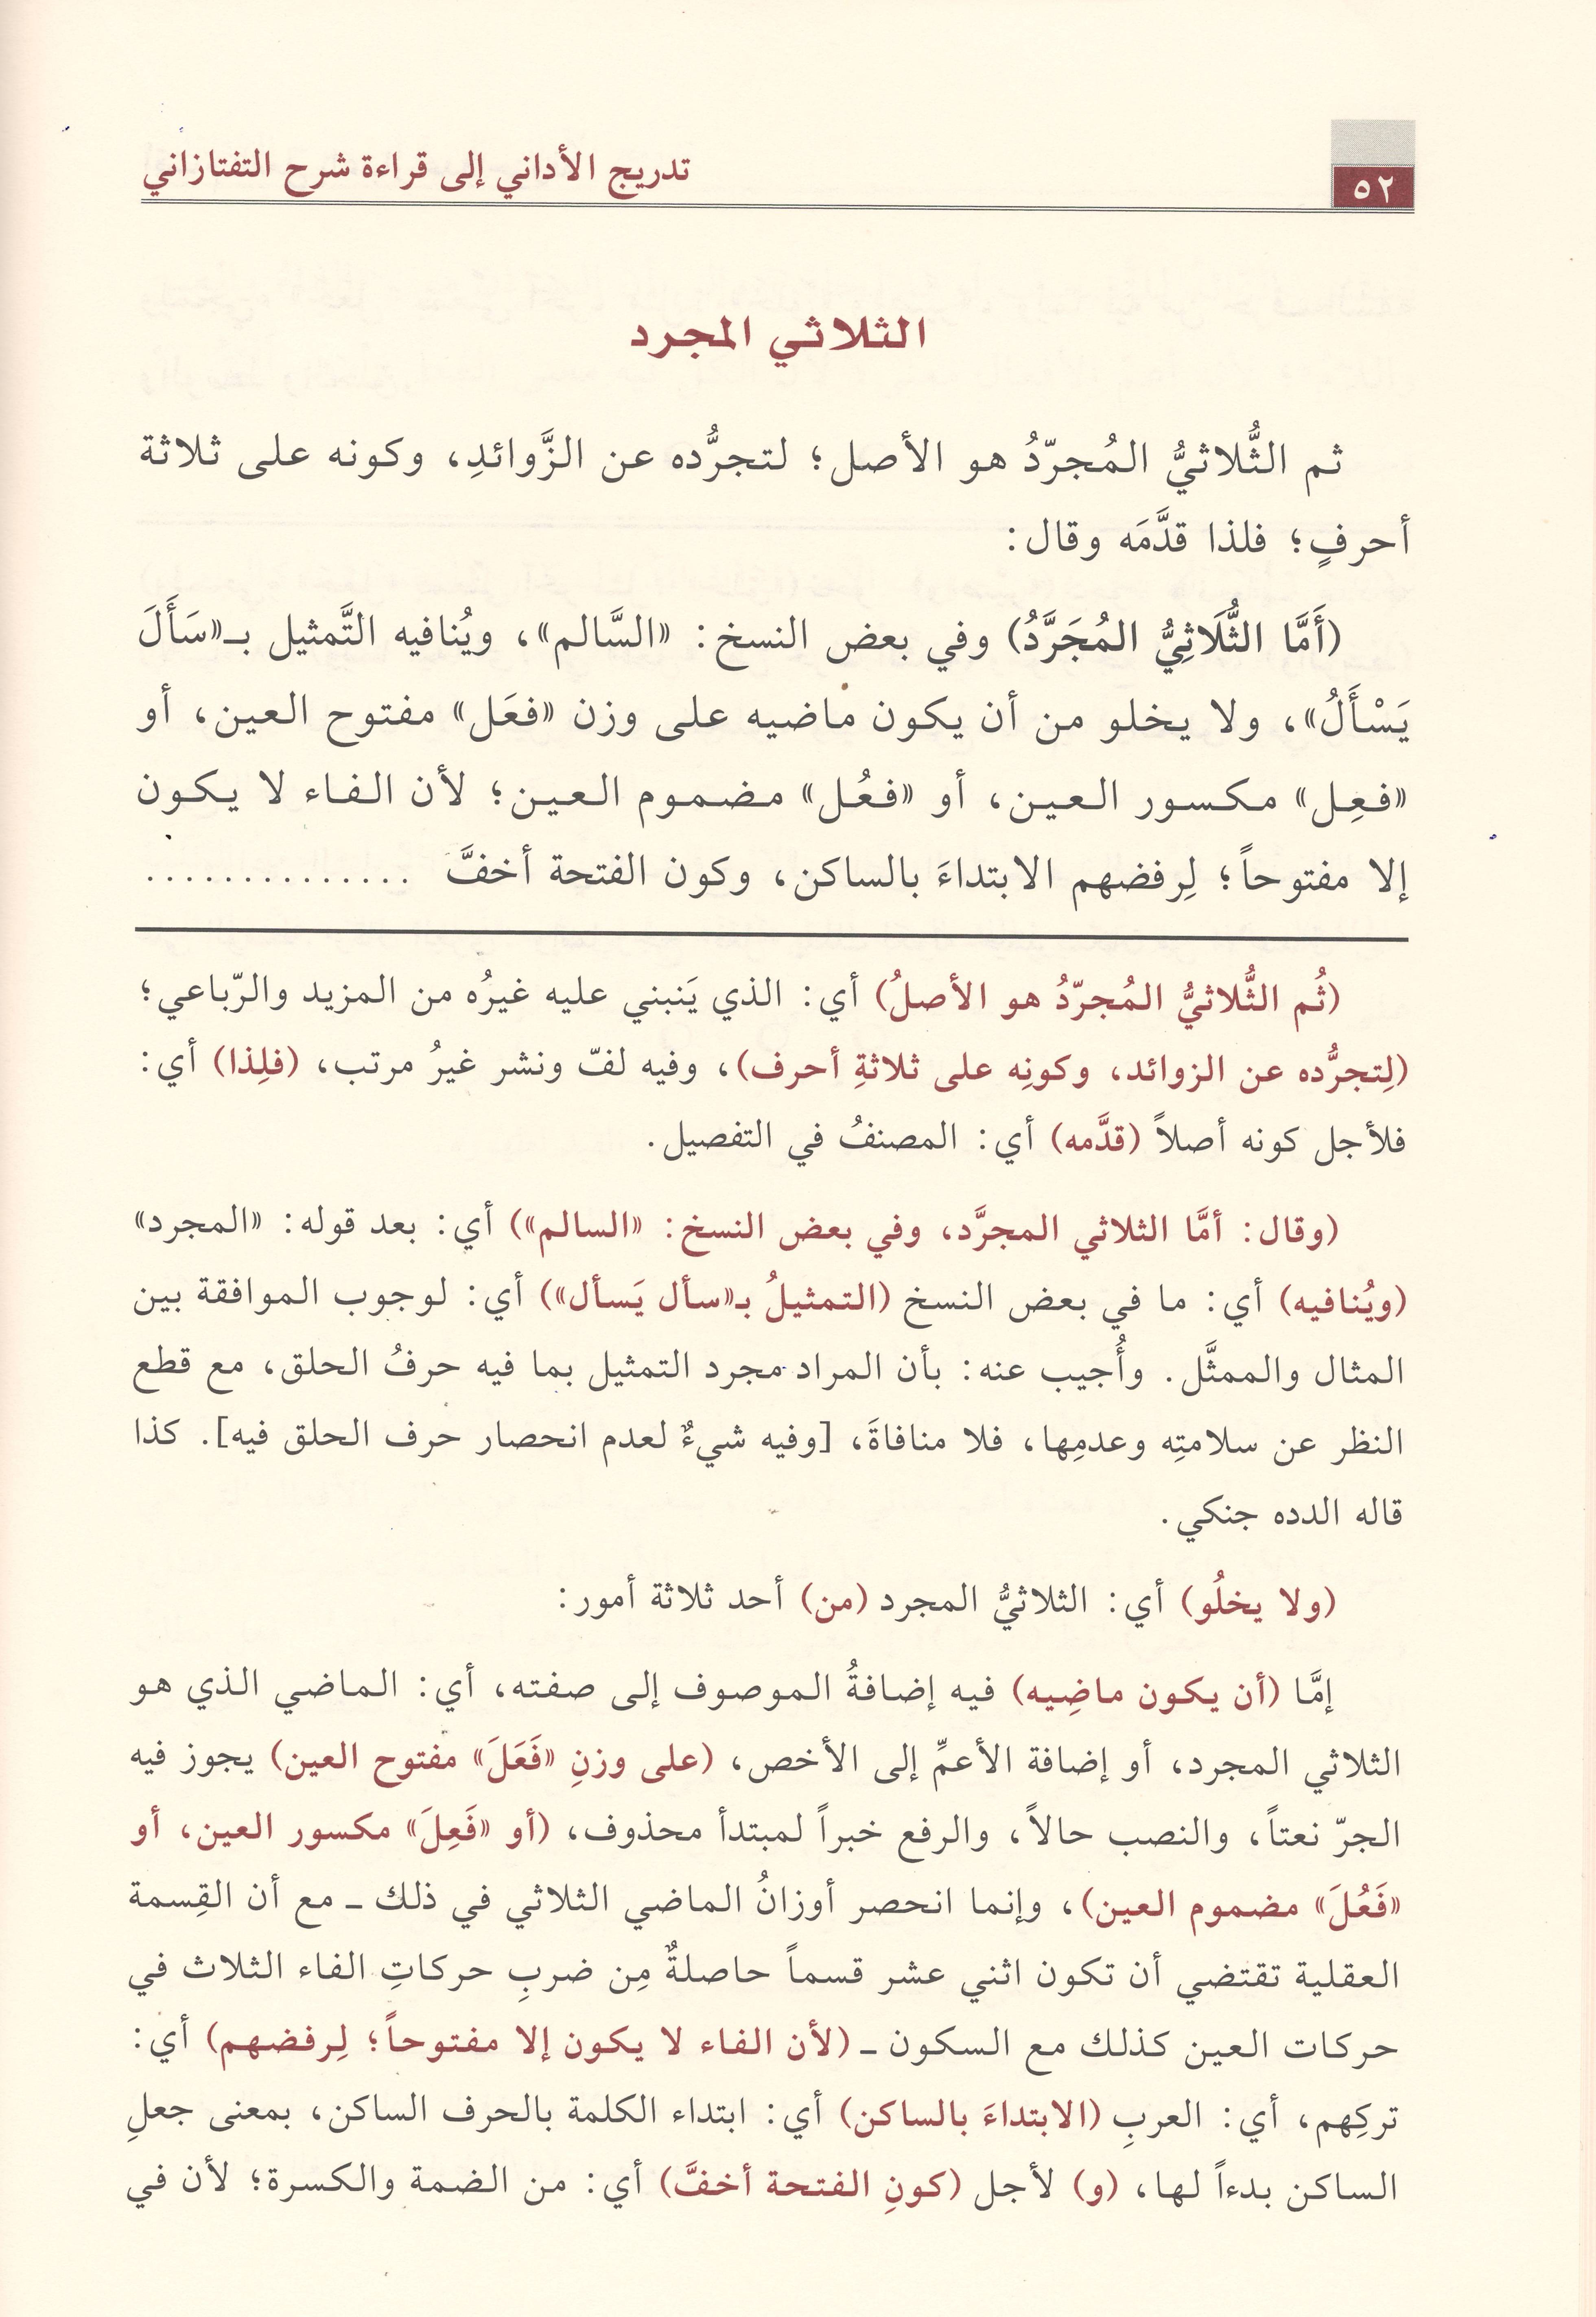 ٥٢
تدريج الأداني إلى قراءة شرح التفتازاني
الثلاثي المجرد
ثم الثُّلاثيُّ المُجرّدُ هو الأصل؛ لتجرُّده عن الزَّوائدِ، وكونه على ثلاثة
أحرفٍ؛ فلذا قدَّمَه وقال:
(أَمَّا الثُّلَاثِيُّ المُجَرَّدُ) وفي بعض النسخ: «السَّالم»، ويُنافيه التَّمثيل بـ«سَأَلَ
يَسْأَلُ»، ولا يخلو من أن يكون ماضيه على وزن «فعَل» مفتوح العين، أو
«فعِل» مكسور العين، أو «فعُل» مضموم العين؛ لأن الفاء لا يكون
إلا مفتوحاً؛ لِرفضهم الابتداءَ بالساكن، وكون الفتحة أخفَّ ..............
(ثُم الثُّلاثيُّ المُجرّدُ هو الأصلُ) أي: الذي يَنبني عليه غيرُه من المزيد والرّباعي؛
(لِتجرُّده عن الزوائد، وكونِه على ثلاثةِ أحرف)، وفيه لفّ ونشر غيرُ مرتب، (فلِذا) أي:
فلأجل كونه أصلاً (قدَّمه) أي: المصنفُ في التفصيل.
(وقال: أمَّا الثلاثي المجرَّد، وفي بعض النسخ: «السالم») أي: بعد قوله: «المجرد»
(ويُنافيه) أي: ما في بعض النسخ (التمثيلُ بـ«سأل يَسأل») أي: لوجوب الموافقة بين
المثال والممثَّل. وأُجيب عنه: بأن المراد مجرد التمثيل بما فيه حرفُ الحلق، مع قطع
النظر عن سلامتِه وعدمِها، فلا منافاةَ، [وفيه شيءٌ لعدم انحصار حرف الحلق فيه]. كذا
قاله الدده جنكي.
(ولا يخلُو) أي: الثلاثيُّ المجرد (من) أحد ثلاثة أمور:
إمَّا (أن يكون ماضِيه) فيه إضافةُ الموصوف إلى صفته، أي: الماضي الذي هو
الثلاثي المجرد، أو إضافة الأعمِّ إلى الأخص، (على وزنِ «فَعَلَ» مفتوح العين) يجوز فيه
الجرّ نعتاً، والنصب حالاً، والرفع خبراً لمبتدأ محذوف، (أو «فَعِلَ» مكسور العين، أو
«فَعُلَ» مضموم العين)، وإنما انحصر أوزانُ الماضي الثلاثي في ذلك ـ مع أن القِسمة
العقلية تقتضي أن تكون اثني عشر قسماً حاصلةٌ مِن ضربِ حركاتِ الفاء الثلاث في
حركات العين كذلك مع السكون ـ (لأن الفاء لا يكون إلا مفتوحاً؛ لِرفضهم) أي:
تركِهم، أي: العربِ (الابتداءَ بالساكن) أي: ابتداء الكلمة بالحرف الساكن، بمعنى جعلِ
الساكن بدءاً لها، (و) لأجل (كونِ الفتحة أخفَّ) أي: من الضمة والكسرة؛ لأن في